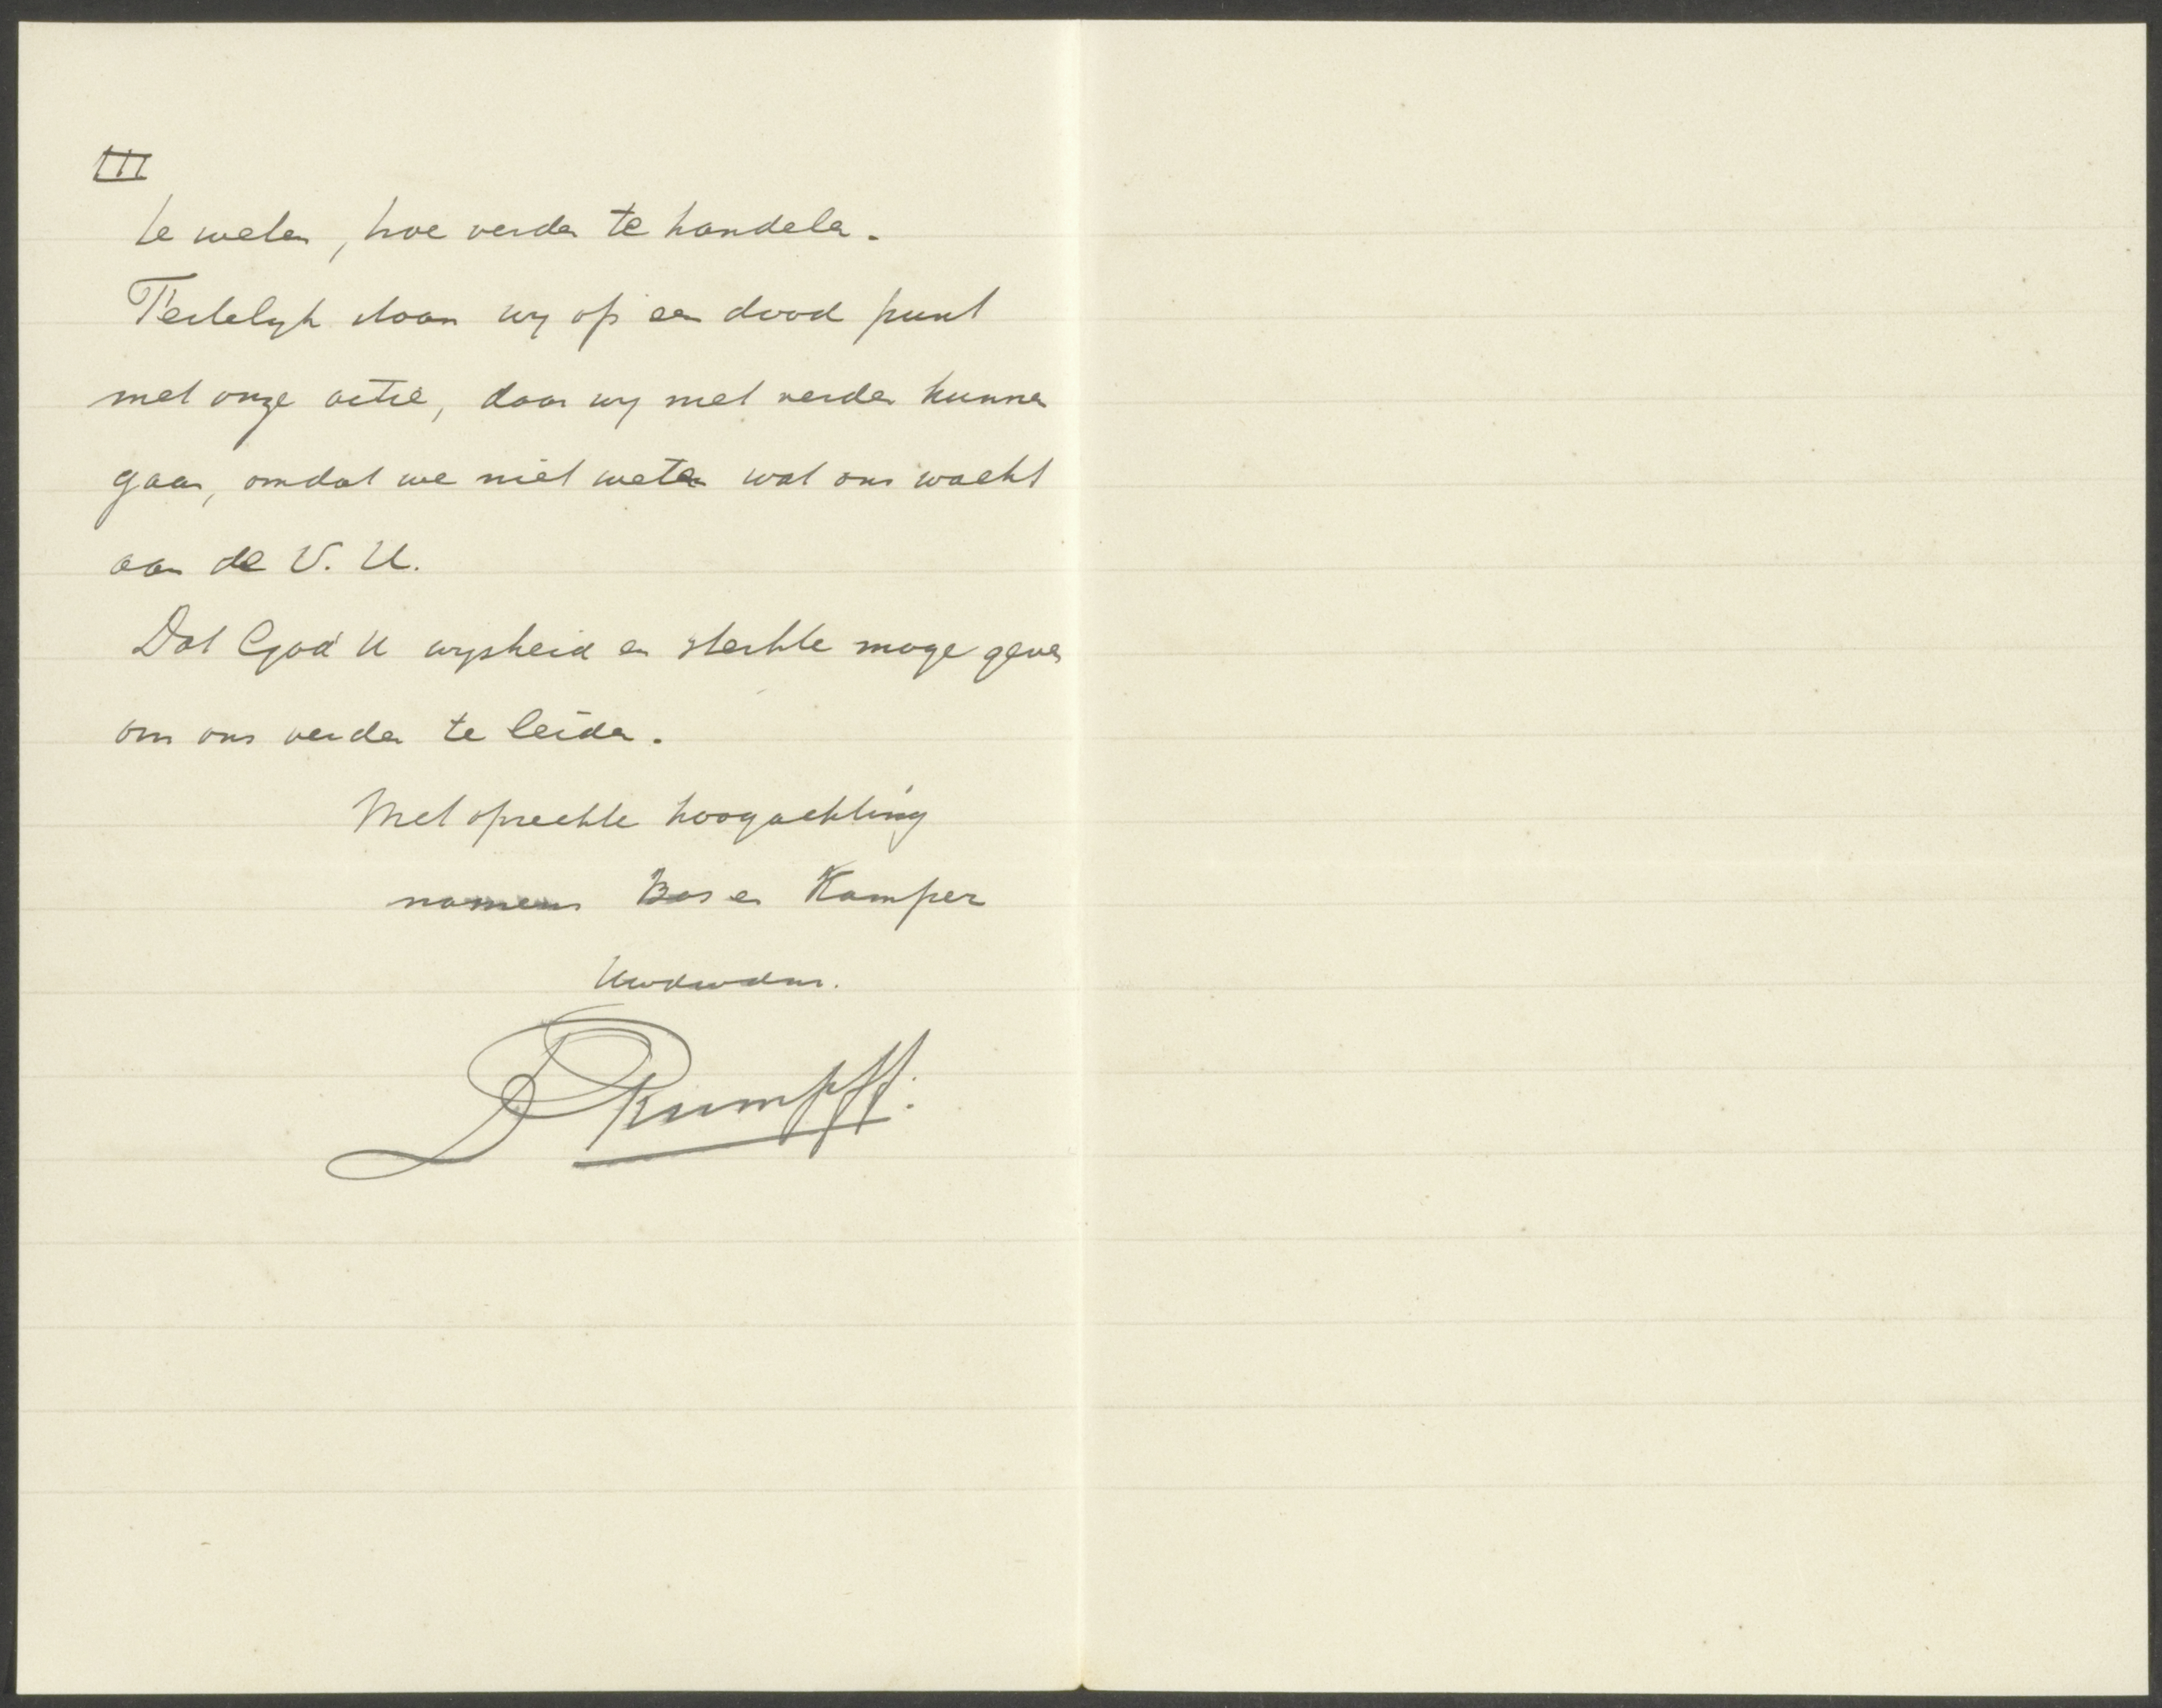 III
te weten, hoe verder te handelen.
Feitelijk staan wij op een dood punt
met onze actie, daar wij niet verder kunnen
gaan, omdat we niet weten wat ons wacht
aan de V. U.
Dat God U wijsheid en sterkte moge geven
om ons verder te leiden.
Met oprechte hoogachting
namens Bos en Kamper
Uwdwdnr.
D Rumpff.